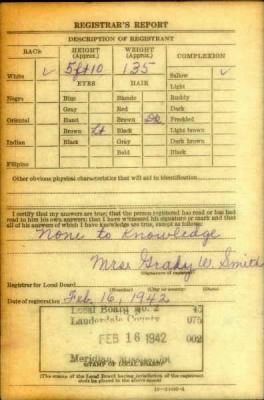 REGISTRAR'S REPORT
DESCRIPTION OF REGISTRANT
RACE HEIGHT (Approx.) WEIGHT (Approx.) COMPLEXION
White ✓ 5ft10 135 Sallow ✓
EYES HAIR Light
Negro Blue Blonde Ruddy
Gray Red Dark
Oriental Hazel Brown Dk Freckled
Brown Lt Black Light brown
Indian Black Gray Dark brown
Bald Black
Filipino
Other obvious physical characteristics that will aid in identification
I certify that my answers are true; that the person registered has read or has had
read to him his own answers; that I have witnessed his signature or mark and that
all of his answers of which I have knowledge are true, except as follows:
None to knowledge
Mrs. Grady W. Smith
(Signature of registrar)
Registrar for Local Board
(Number) (City or county) (State)
Date of registration Feb. 16, 1942
Local Board No. 2 47
Lauderdale County 075
FEB 16 1942 002
Meridian, Mississippi
(STAMP OF LOCAL BOARD)
(The stamp of the Local Board having jurisdiction of the registrant
shall be placed in the above space)